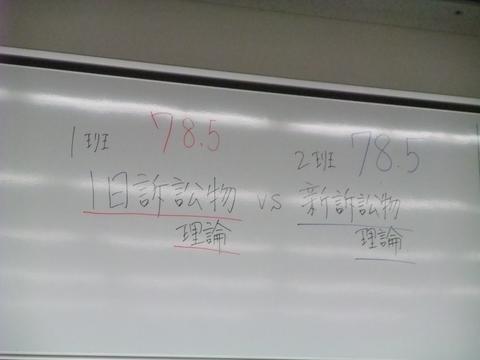 1班 78.5
旧訴訟物
理論
vs
2班 78.5
新訴訟物
理論